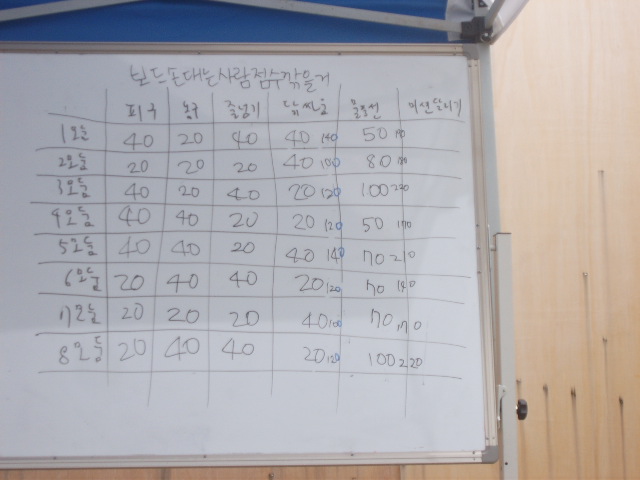 보드 손대는사람 점수깎을거
피구 농구 줄넘기 닭싸움 물풍선 미션달리기
1모둠 40 20 40 40 140 50 190
2모둠 20 20 20 40 100 80 180
3모둠 40 20 40 20 120 100 220
4모둠 40 40 20 20 120 50 170
5모둠 40 40 20 40 140 70 210
6모둠 20 40 40 20 120 70 190
7모둠 20 20 20 40 100 70 170
8모둠 20 40 40 20 120 100 220